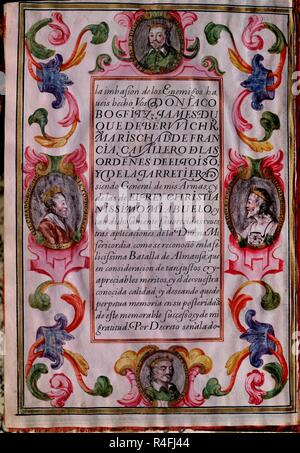 la imbasion de los Enemigos ha
ueis hecho Vos DON IACO
BO FITZ JAMES DU
QUE DE BERUUICHK
MARISCHAL DE FRAN
CIA, CAVALLERO DE LAS
ORDENES DEL TOISO,
Y DE LA JARRETIERA
siendo General de mis Armas, y
de las del REY CHRISTIA
NISSIMO MI ABUELO, y
ras aplicaciones de la Divina Mi
sericordia, como se reconocio en la fe
licissima Batalla de Almansa, que
en consideracion de tan justos, y
apreciables meritos, y el de vuestra
conocida calidad, y deseando quede
perpetua memoria en su posteridad
de este memorable sucesso, y de mi
gratitud, Por Decreto señalado
alamy
Image ID: R4FJ44
www.alamy.com